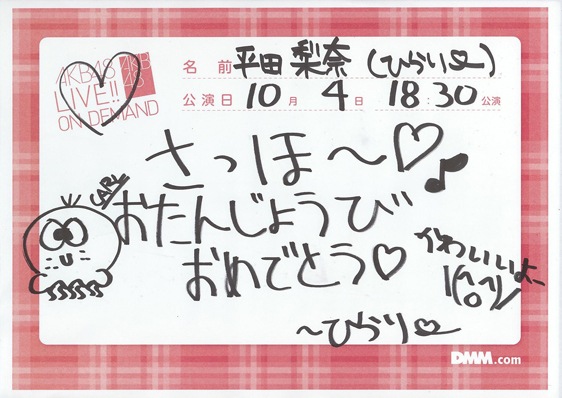 AKB48
LIVE!!
ON DEMAND
AKB
48
名前 平田 梨奈 (ひらりー)
公演日 10月 4日 18:30公演
さっほ〜♡♪
おたんじょうび
おめでとう♡
かわいいよー
〜ひらりー
DMM.com